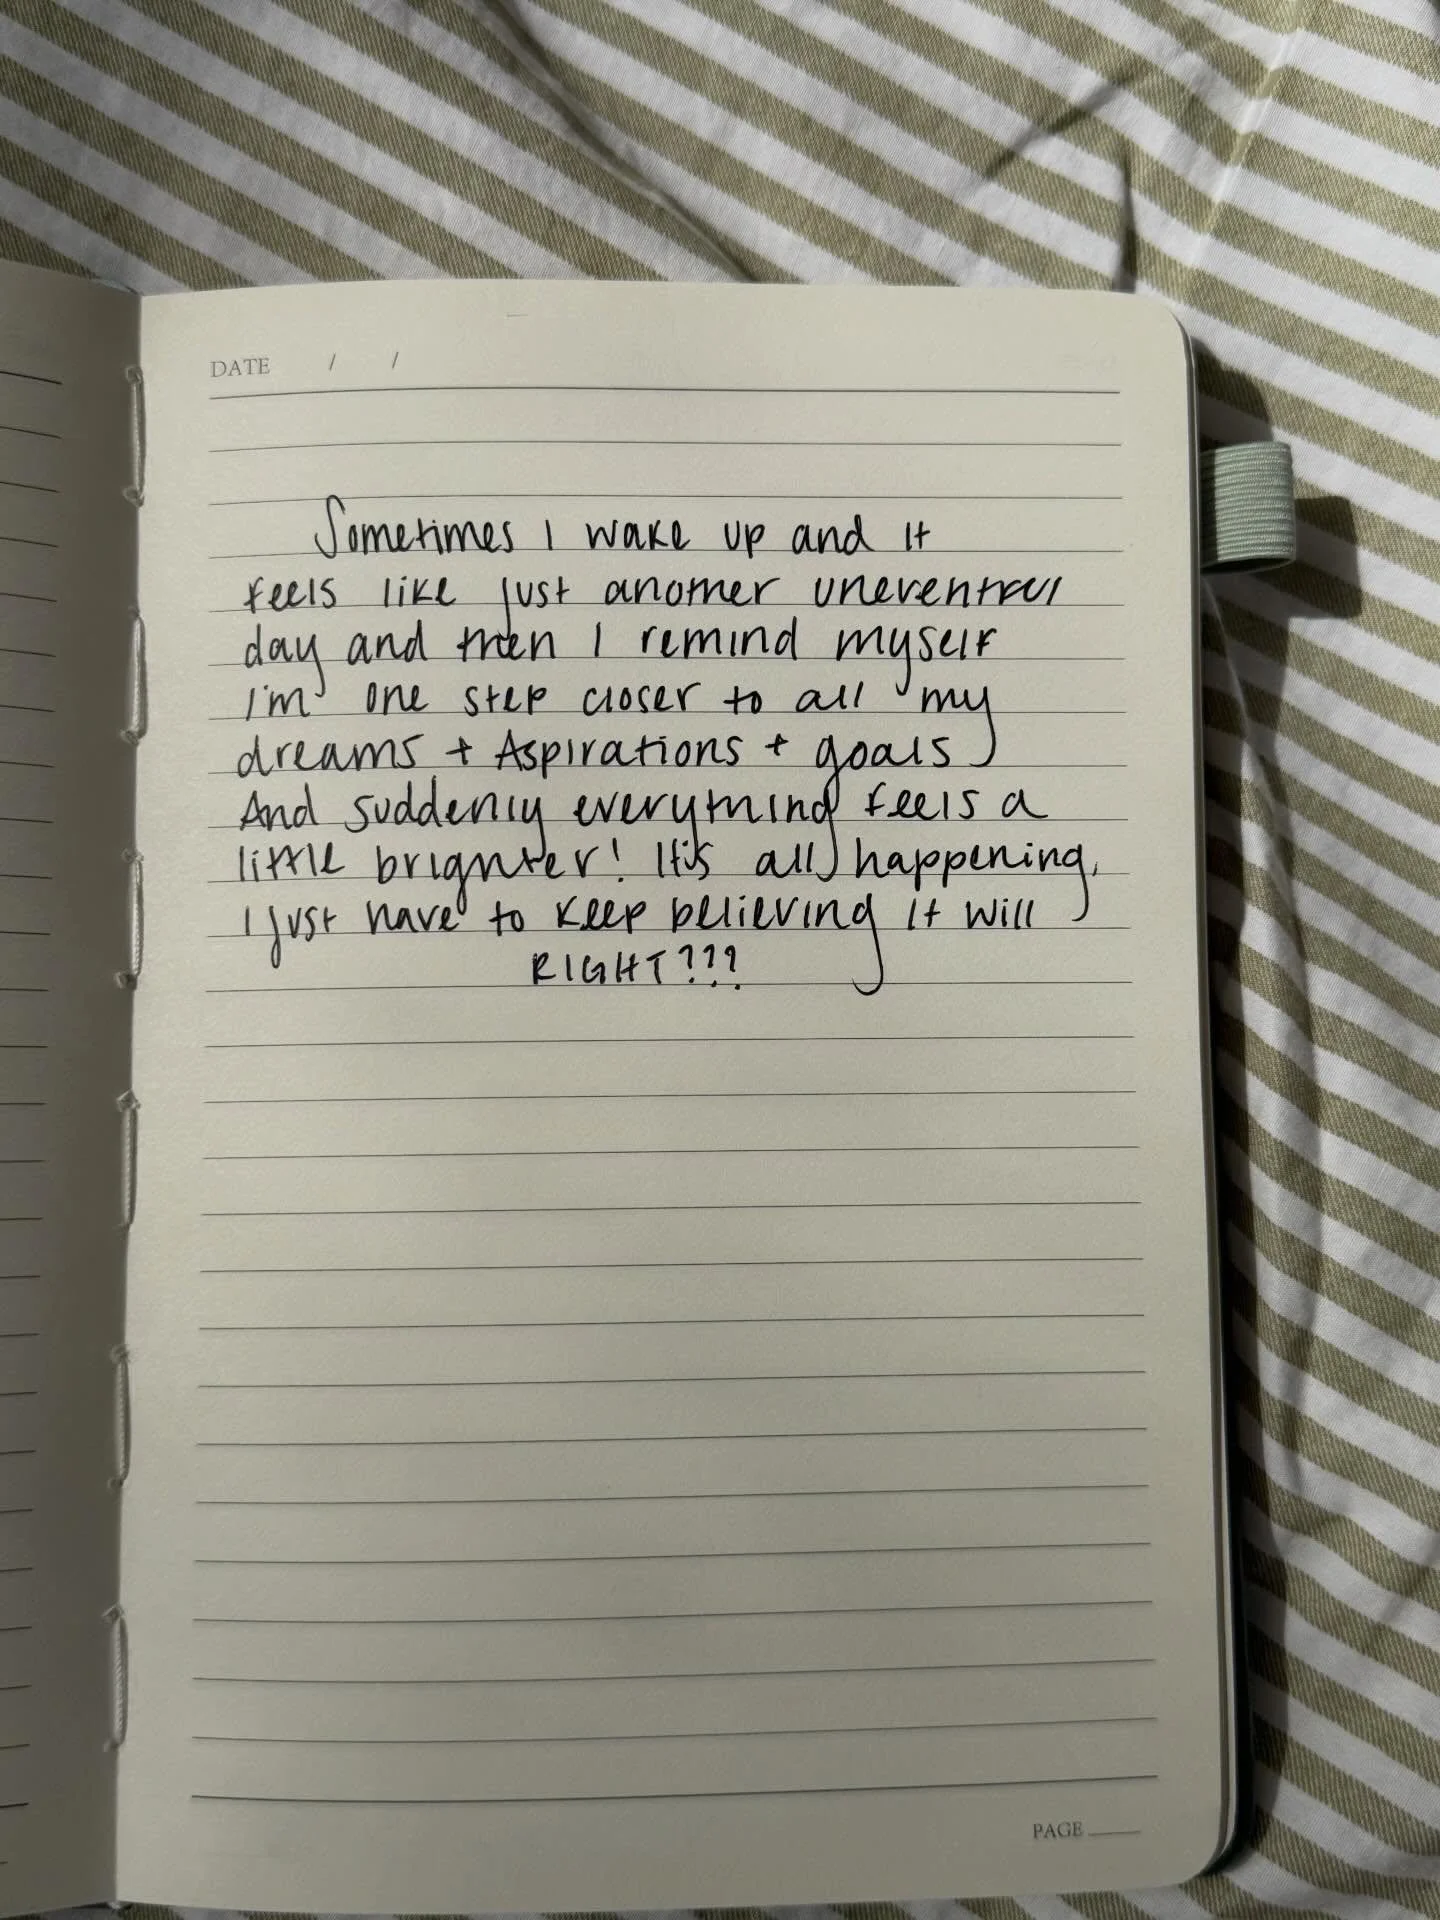 DATE / /
Sometimes I wake up and it
feels like just another uneventful
day and then I remind myself
I'm one step closer to all my
dreams + Aspirations + goals
And suddenly everything feels a
little brighter! It's all happening,
I just have to keep believing it will
RIGHT???
PAGE